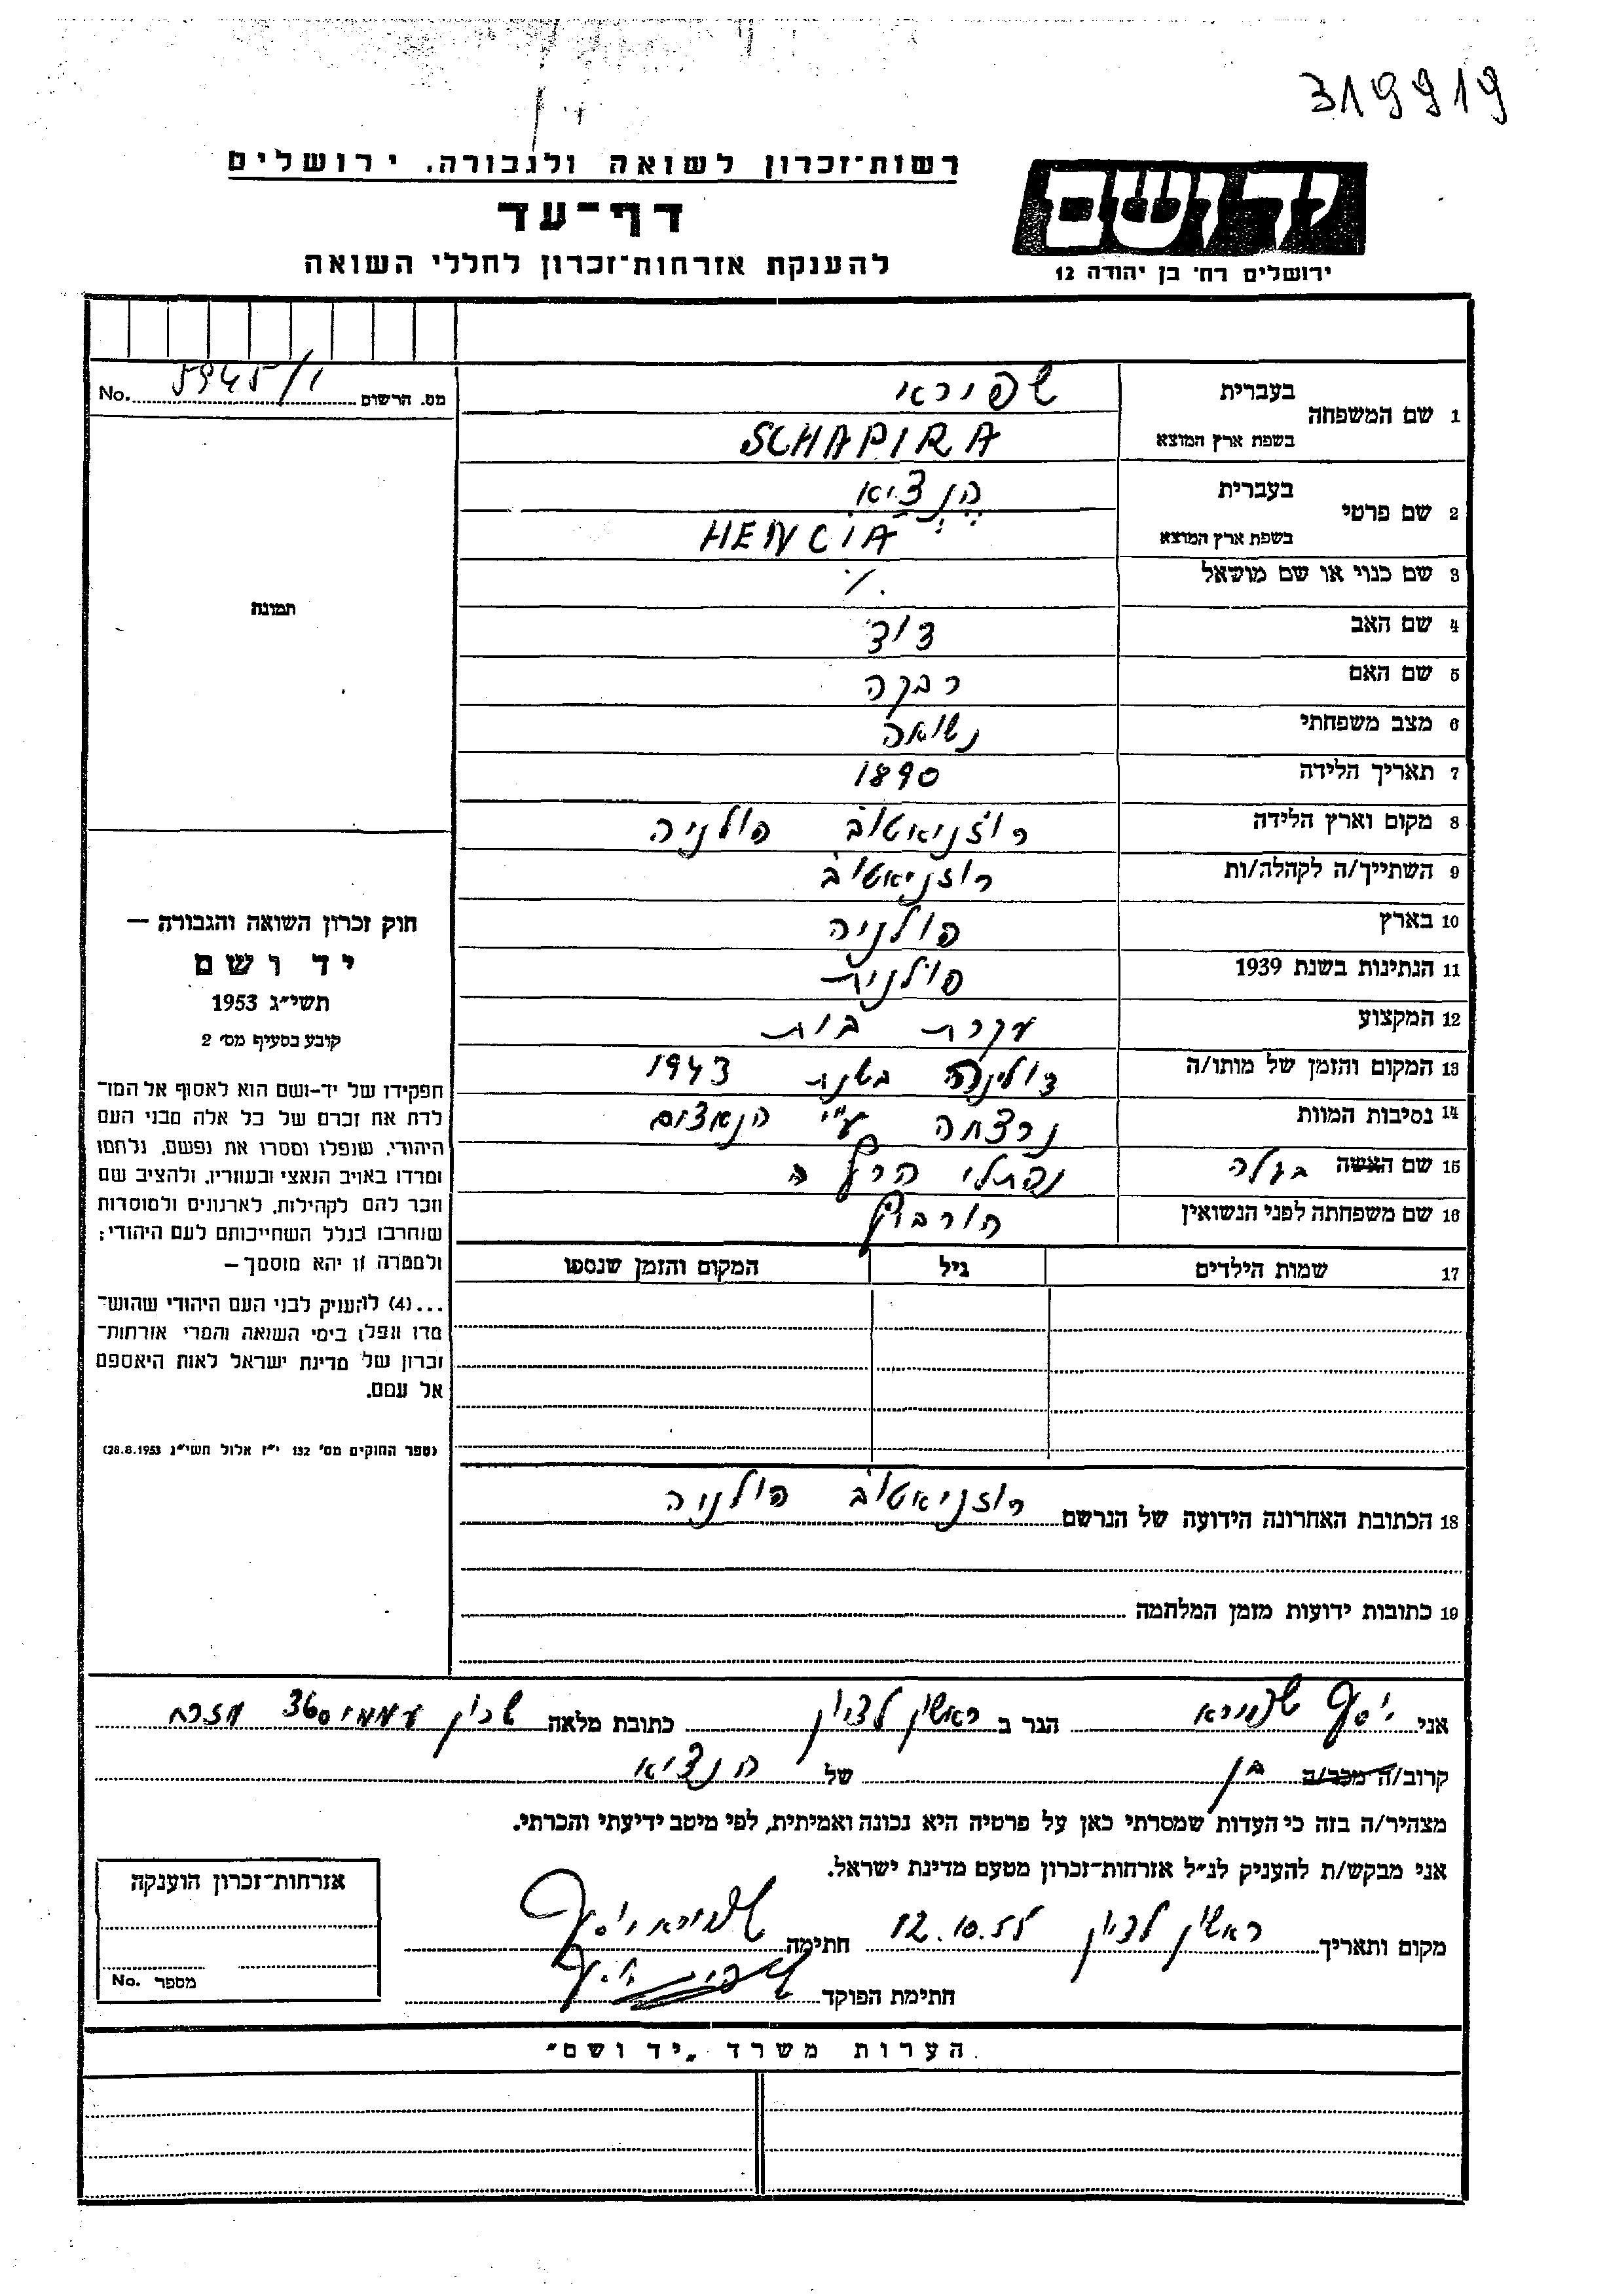 319919
רשות־זכרון לשואה ולגבורה, ירושלים
דף־עד
להענקת אזרחות־זכרון לחללי השואה
יד ושם
ירושלים רח' בן יהודה 12
מס. הרשום No. 5945/1
תמונה
חוק זכרון השואה והגבורה —
יד ושם
תשי״ג 1953
קובע בסעיף מס' 2
תפקידו של יד-ושם הוא לאסוף אל המו־
לדת את זכרם של כל אלה מבני העם
היהודי, שנפלו ומסרו את נפשם, נלחמו
ומרדו באויב הנאצי ובעוזריו, ולהציב שם
וזכר להם לקהילות, לארגונים ולמוסדות
שנחרבו בגלל השתייכותם לעם היהודי;
ולמטרה זו יהא מוסמך —
...(4) להעניק לבני העם היהודי שהוש־
מדו ונפלו בימי השואה והמרי אזרחות־
זכרון של מדינת ישראל לאות היאספם
אל עמם.
(ספר החוקים מס' 132 י״ז אלול תשי״ג 28.8.1953)
1 שם המשפחה בעברית שפירא
בשפת ארץ המוצא SCHAPIRA
2 שם פרטי בעברית הֶנְצִיאַ
בשפת ארץ המוצא HENCIA
3 שם כנוי או שם מושאל ./.
4 שם האב דוד
5 שם האם רבקה
6 מצב משפחתי נשואה
7 תאריך הלידה 1890
8 מקום וארץ הלידה רוזניאטוב פולניה
9 השתייך/ה לקהלה/ות רוזניאטוב
10 בארץ פולניה
11 הנתינות בשנת 1939 פולנית
12 המקצוע עקרת בית
13 המקום והזמן של מותו/ה דולינה בשנת 1943
14 נסיבות המוות נרצחה ע״י הנאצים
15 שם האשה בעלה נפתלי הרץ
16 שם משפחתה לפני הנשואין הורביץ
17 שמות הילדים גיל המקום והזמן שנספו
18 הכתובת האחרונה הידועה של הנרשם רוזניאטוב פולניה
19 כתובות ידועות מזמן המלחמה
אני יוסף שפירא הגר ב ראשון לציון כתובת מלאה שכון עממי 360 מזרח
קרוב/ה מכר/ה בן של הנציא
מצהיר/ה בזה כי העדות שמסרתי כאן על פרטיה היא נכונה ואמיתית, לפי מיטב ידיעתי והכרתי.
אני מבקש/ת להעניק לנ״ל אזרחות־זכרון מטעם מדינת ישראל.
מקום ותאריך ראשון לציון 12.10.55 חתימה שפירא יוסף
חתימת הפוקד
אזרחות־זכרון הוענקה
מספר No.
הערות משרד „יד ושם״